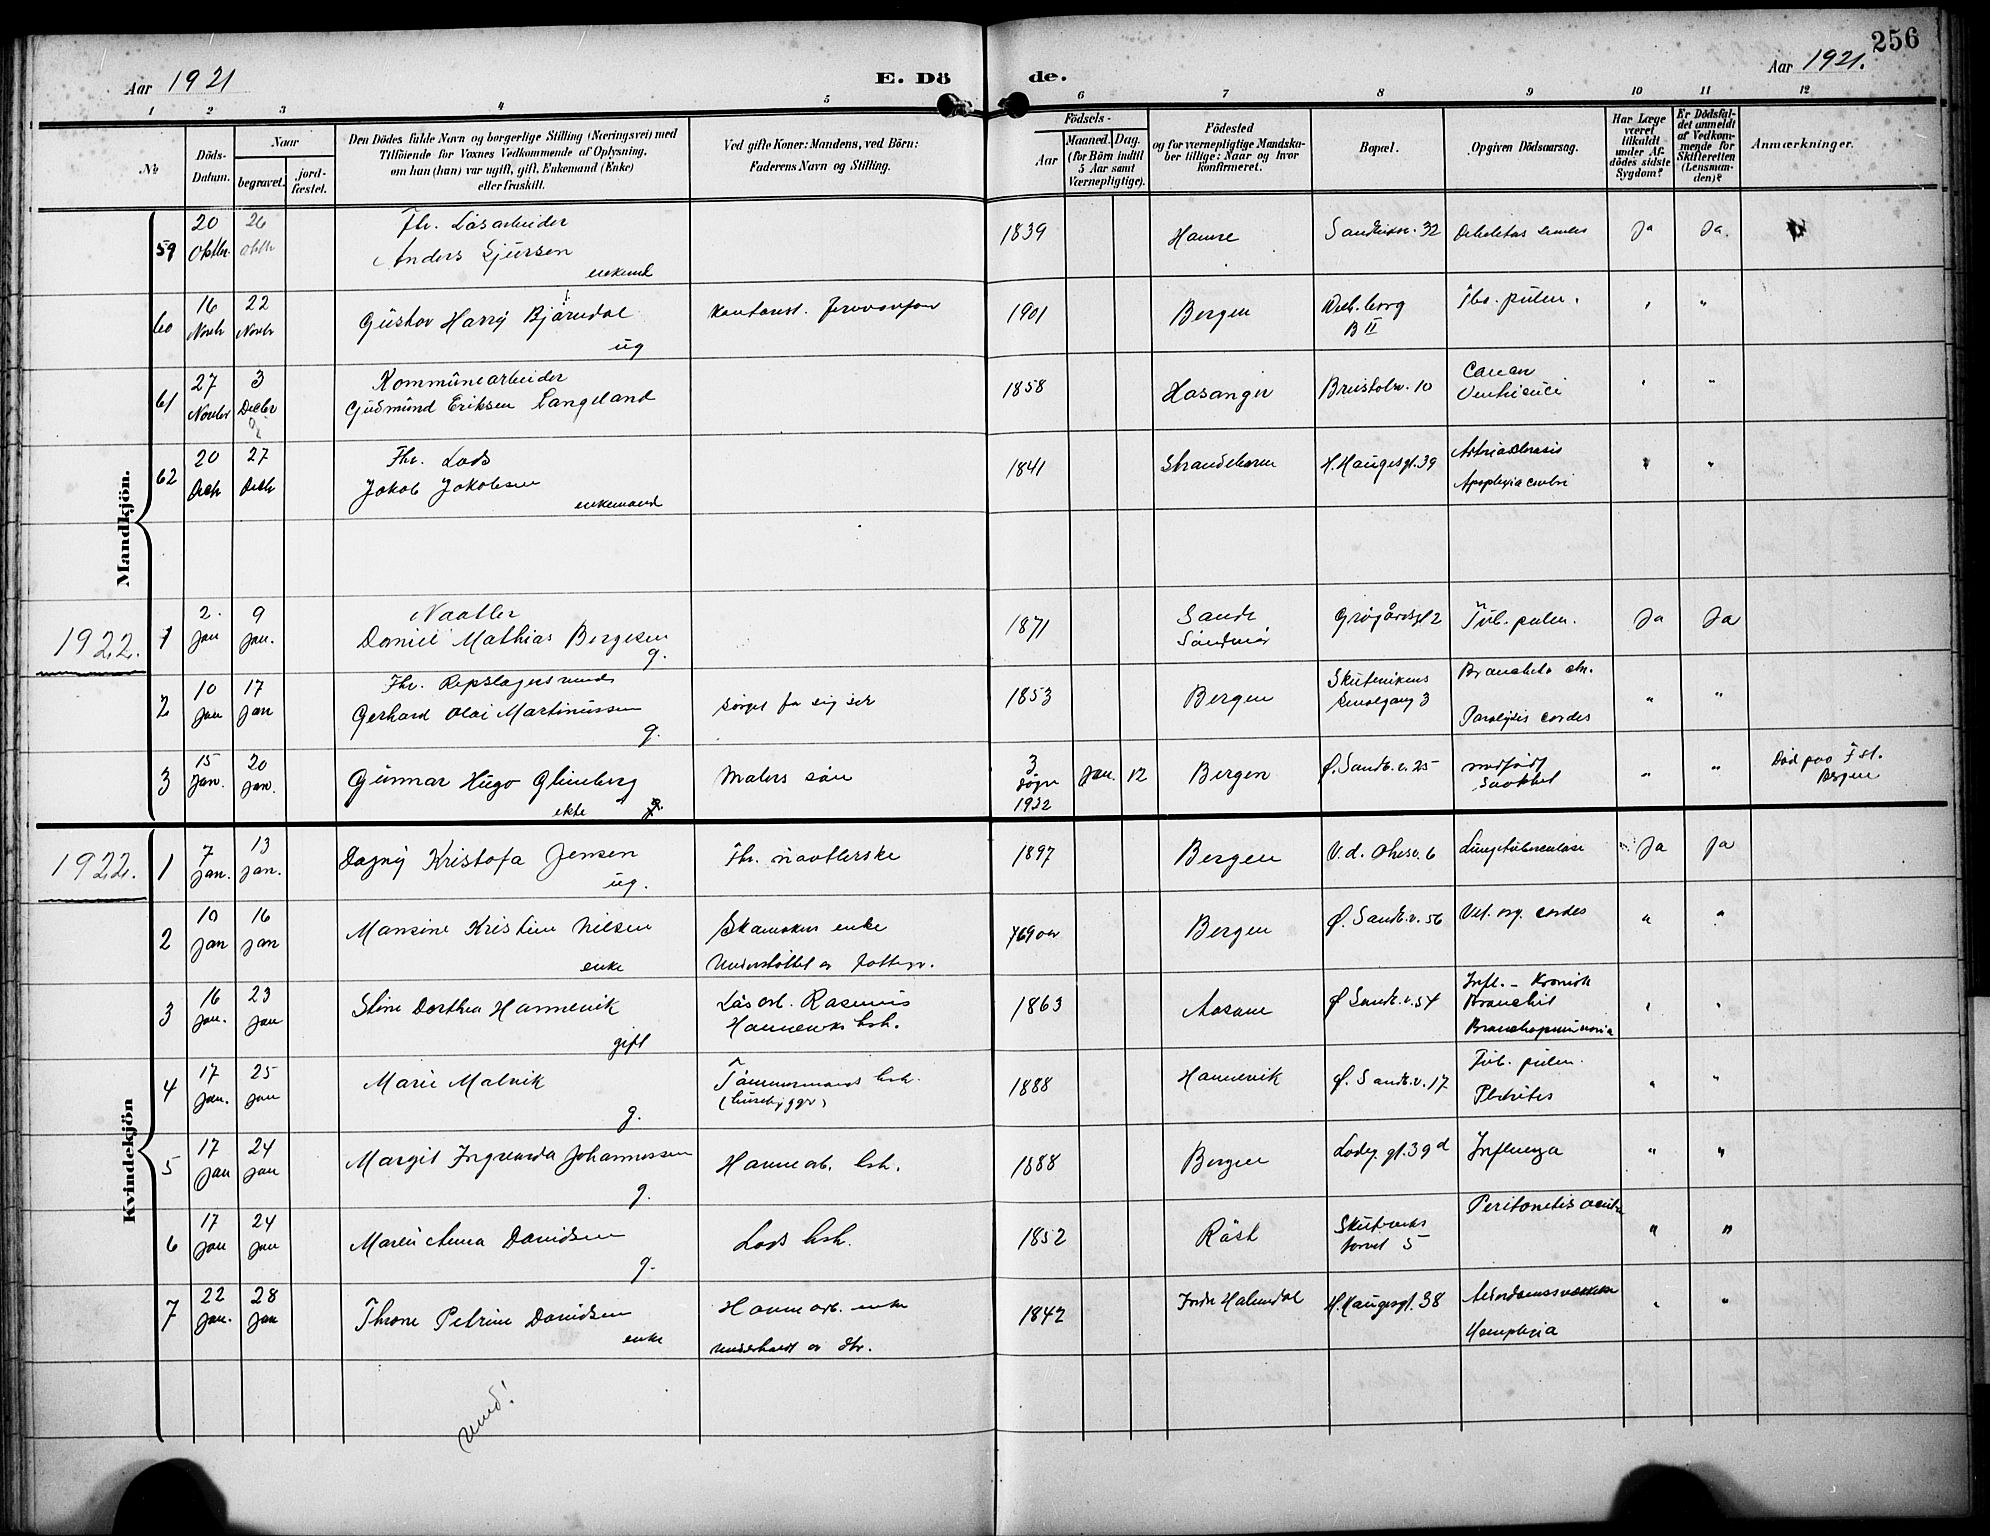 256
Aar 1921
E. Dö
de.
Aar 1921.
1 2 3 4 5 6 7 8 9 10 11 12
No
Döds-
Datum.
Naar
begravet.
jord-
fæstet.
Den Dödes fulde Navn og borgerlige Stilling (Næringsvei) med
Tilföiende for Voxnes Vedkommende af Oplysning,
om han (hun) var ugift, gift, Enkemand (Enke)
eller fraskilt.
Ved gifte Koner: Mandens, ved Börn:
Faderens Navn og Stilling.
Födsels-
Aar
Maaned.
Dag.
(for Börn indtil
5 Aar samt
Værnepligtige).
Födested
og for værnepligtige Mandska-
ber tillige: Naar og hvor
konfirmeret.
Bopæl.
Opgiven Dödsaarsag.
Har Læge
været
tilkaldt
under Af-
dödes sidste
Sygdom?
Er Dödsfal-
det anmeldt
af Vedkom-
mende for
Skifteretten
(Lensman-
den)?
Anmærkninger.
Mandkjön.
59 20 Oktbr. 26 Oktbr
Fhr. Løsarbeider
Anders Sjursen
enkemd
1839 Hamre Sandviksv. 32 Ja Ja.
60 16 Novbr 22 Novbr
Gustav Harry Bjørndal
ug
1901 Bergen B II Tbc. pulm. " "
61 27 Novbr 3 Decbr
Kommunearbeider
Gudmund Eriksen Langeland
1858 Hosanger 10 Cancer
Ventriculi " "
62 20 Decbr 27 Decbr
Fhr. Lods
Jakob Jakobsen
enkemand
1841 Strandebarm H. Haugesgt. 39
Apoplexia cerebri " "
1922.
1 2. Jan 9 Jan.
Naatler
Daniel Mathias Bergesen
g.
1871 Sande
Søndmør 2 Tub. pulm. Ja Ja
2 10 Jan 17 Jan
Fhr. Repslagersvend
Gerhard Olai Martinussen
g.
sørget for sig selv
1853 Bergen 3 Bronchitis chr.
Paralysis cordis " "
3 15 Jan. 20 Jan.
Gunnar Hugo Glimberg
ekte
Malers søn
3
døgn
1922 Jan. 12 Bergen Ø. Sandv.v. 25 medfødt
Svakhet " " Død paa Fst.
Bergen
Kvindekjön
1922.
1 7 Jan. 13 Jan.
Dagny Kristofa Jensen
ug.
Fhr. naatlerske
1897 Bergen 6 Lungetuberculose Ja Ja
2 10 Jan 16 Jan
Mansine Kristine Nilsen
enke
Skomakers enke
Understøttet av fattigv.
69 aar Bergen Ø. Sandv.v. 56 Vit. org. cordis " "
3 16 Jan. 23 Jan
Stine Dorthea Hannevik
gift
Løsarb. Rasmus
Hanneviks hstr.
1863 Aasane Ø Sandv.v. 54 Infl. - Kronisk
Bronchit
Bronchopneumonia " "
4 17 Jan. 25 Jan
Marie Malvik
g.
Tømmermands hstr.
(husbygger)
1888 Hannevik Ø. Sandv.v. 17 Tub. pulm.
Pleuritis " "
5 17 Jan 24 Jan
Margit Ingvarda Johannessen
g.
Havnearb. hstr.
1888 Bergen Lodeg. gt. 39 d Influenza " "
6 17 Jan 24 Jan
Maren Anna Davidsen
g.
Lods hstr.
1852 Røst Skuteviks
torvet 5 Peritonitis acuta " "
7 22 Jan. 28 Jan
Throne Petrine Davidsen
enke
Havnearb. enke
underholdt av dtr.
1842 Indre Holmedal H. Haugesgt. 38 Alderdomssvækkelse
Hemiplegia " "